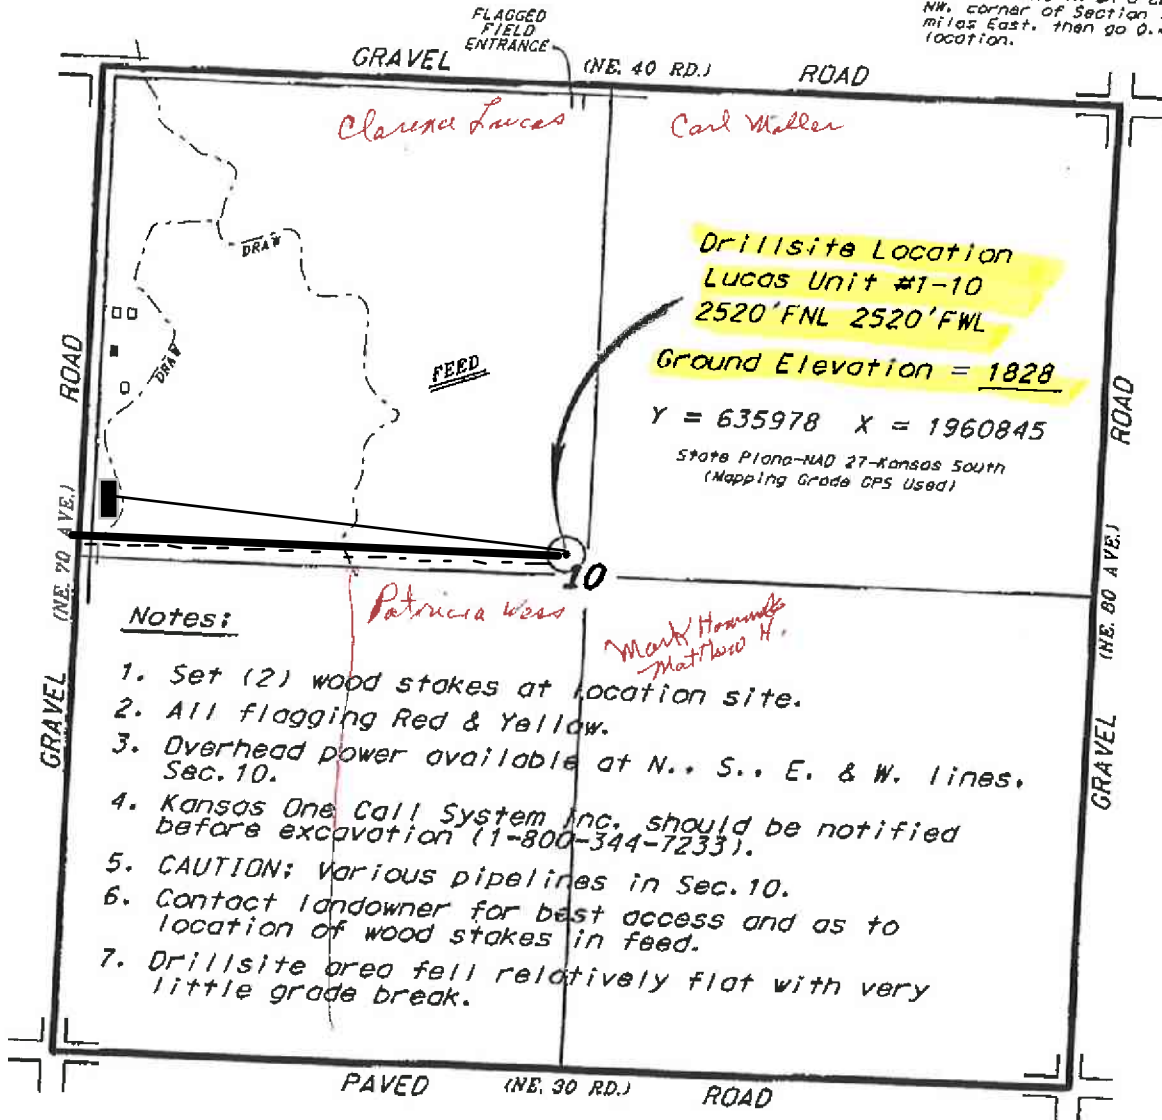 NW. corner of Section
miles East. then go 0.
location.
FLAGGED
FIELD
ENTRANCE
GRAVEL (NE. 40 RD.) ROAD
Clarence Lucas
Carl Moller
DRAW
Drillsite Location
Lucas Unit #1-10
2520'FNL 2520'FWL
Ground Elevation = 1828
Y = 635978 X = 1960845
State Plane-NAD 27-Kansas South
(Mapping Grade GPS Used)
DRAW
FEED
ROAD
(NE. 70 AVE.)
GRAVEL
ROAD
(NE. 80 AVE.)
GRAVEL
10
Patricia
Mark
Matthew H.
Notes:
1. Set (2) wood stakes at location site.
2. All flagging Red & Yellow.
3. Overhead power available at N., S., E. & W. lines.
Sec. 10.
4. Kansas One Call System Inc. should be notified
before excavation (1-800-344-7233).
5. CAUTION: Various pipelines in Sec. 10.
6. Contact landowner for best access and as to
location of wood stakes in feed.
7. Drillsite area fell relatively flat with very
little grade break.
PAVED (NE. 30 RD.) ROAD